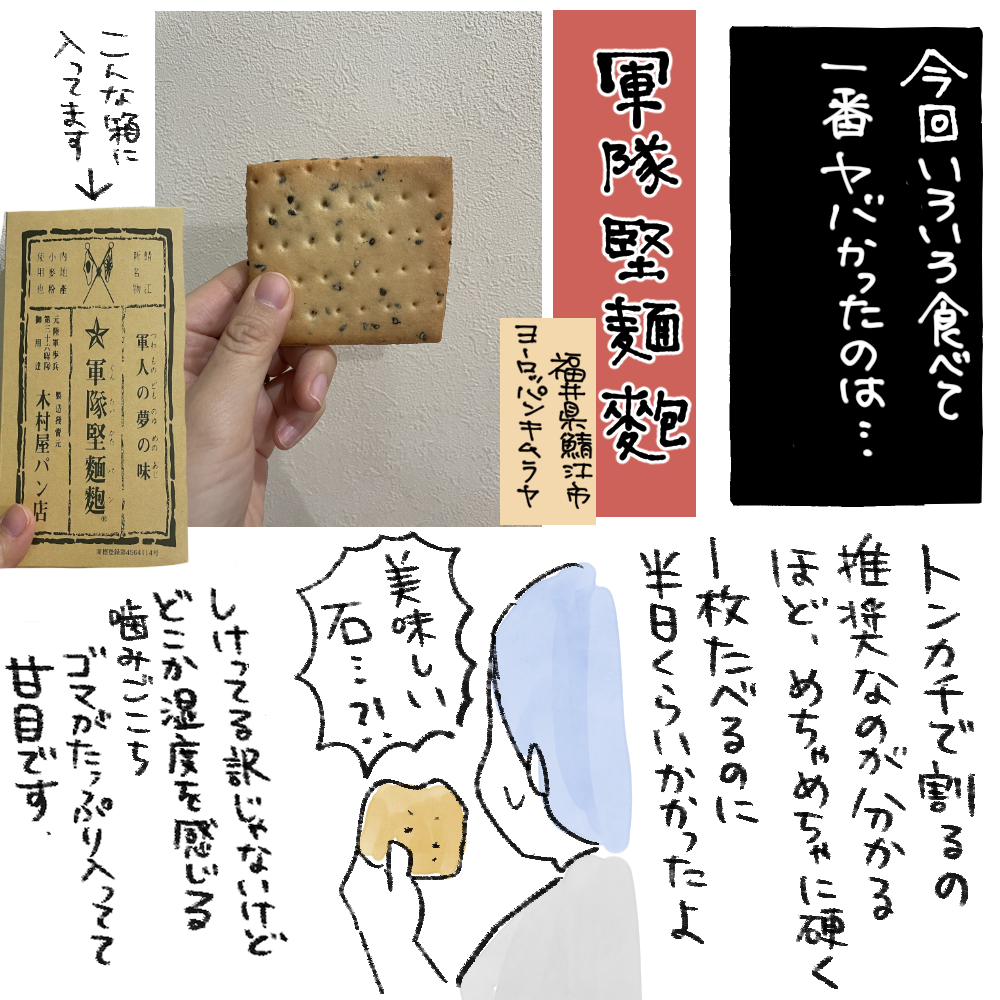 今回いろいろ食べて
一番ヤバかったのは…
軍隊堅麺麭
福井県鯖江市
ヨーロッパンキムラヤ
こんな箱に
入ってます
鯖江
新名物
内地産
小麦粉
使用也
つわものどものゆめのあじ
軍人の夢の味
ぐんたいかたパン
★軍隊堅麺麭
元陸軍歩兵
第三十六聯隊
御用達
製造発売元
木村屋パン店
商標登録第4564114号
トンカチで割るの
推奨なのが分かる
ほど、めちゃめちゃに硬く
1枚たべるのに
半日くらいかかったよ
美味しい
石…?!
しけってる訳じゃないけど
どこか湿度を感じる
噛みごこち
ゴマがたっぷり入ってて
甘目です.